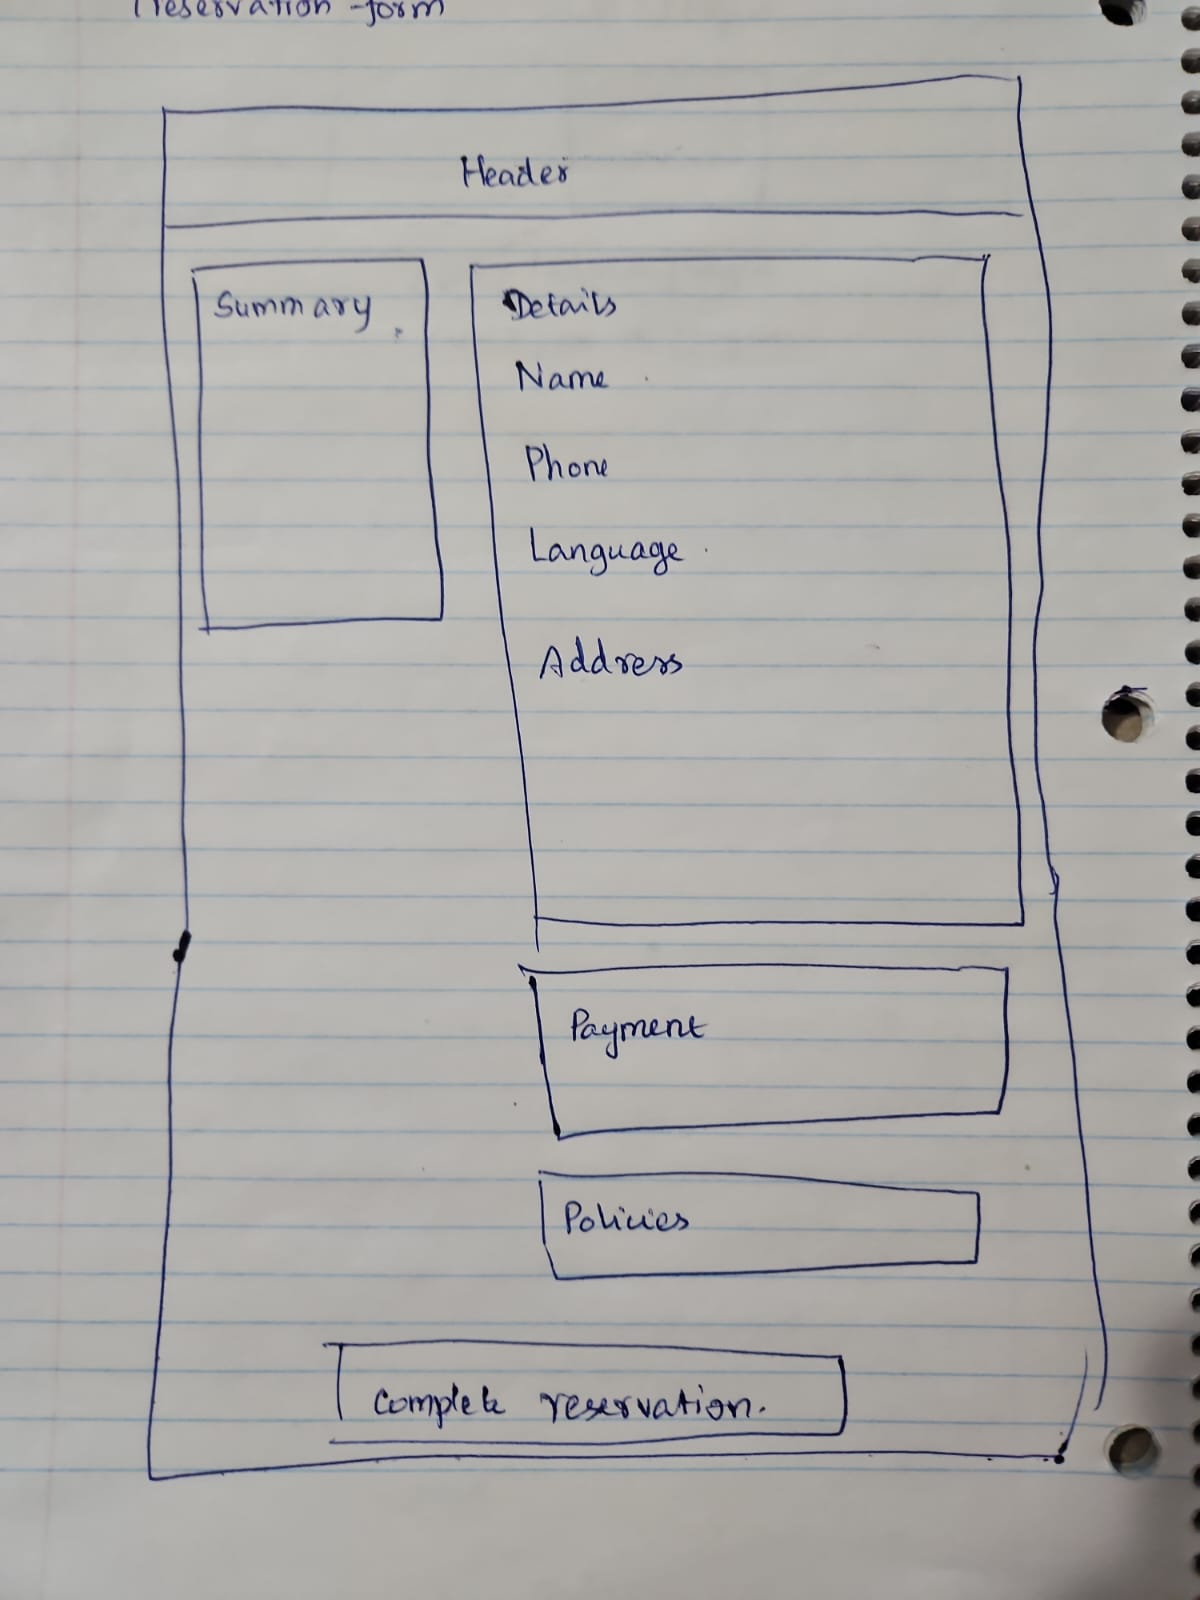 Reservation form
Header
Summary
Details
Name
Phone
Language
Address
Payment
Policies
Complete reservation.